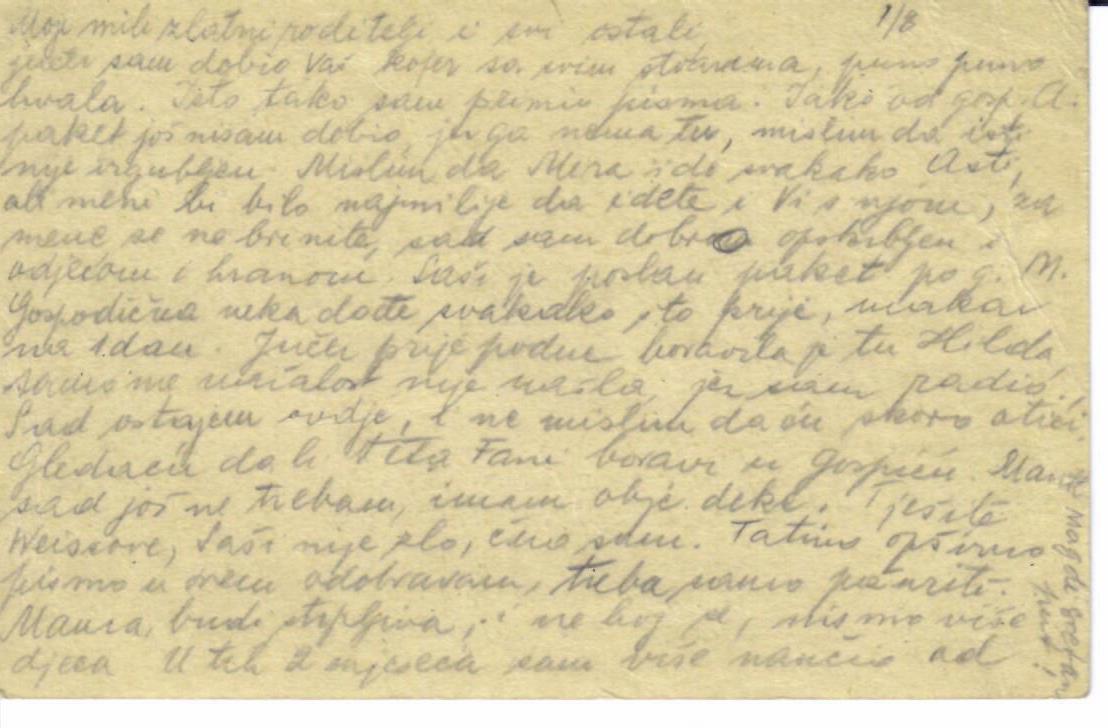 1/8
Moji mili zlatni roditelji i svi ostali,
jučer sam dobio Vaš kofer sa svim stvarima, puno puno
hvala. Isto tako sam primio pisma. Tako od gosp. A.
paket još nisam dobio, jer ga nema tu, mislim da isti
nije izgubljen. Mislim da Mira ide svakako Asti,
ali meni bi bilo najmilije da idete i Vi s njom, za
mene se ne brinite, sad sam dobro opskrbljen i
odjećom i hranom. Saši je poslan paket po g. M.
Gospodična neka dođe svakako što prije, makar
na 1 dan. Jučer prije podne boravila je tu Hilda,
samo me nažalost nije našla, jer sam radio.
Sad ostajem ovdje, i ne mislim da ću skoro otići.
Gledaću da li Teta Fani boravi u Gospiću.
sad još ne trebam, imam obje deke. Tješite
Weissove, Saši nije zlo, čuo sam. Tatino opširno
pismo u svem odobravam, treba samo požuriti.
Mama, budi strpljiva, i ne boj se, nismo više
djeca U tih 2 mjeseca sam više naučio od